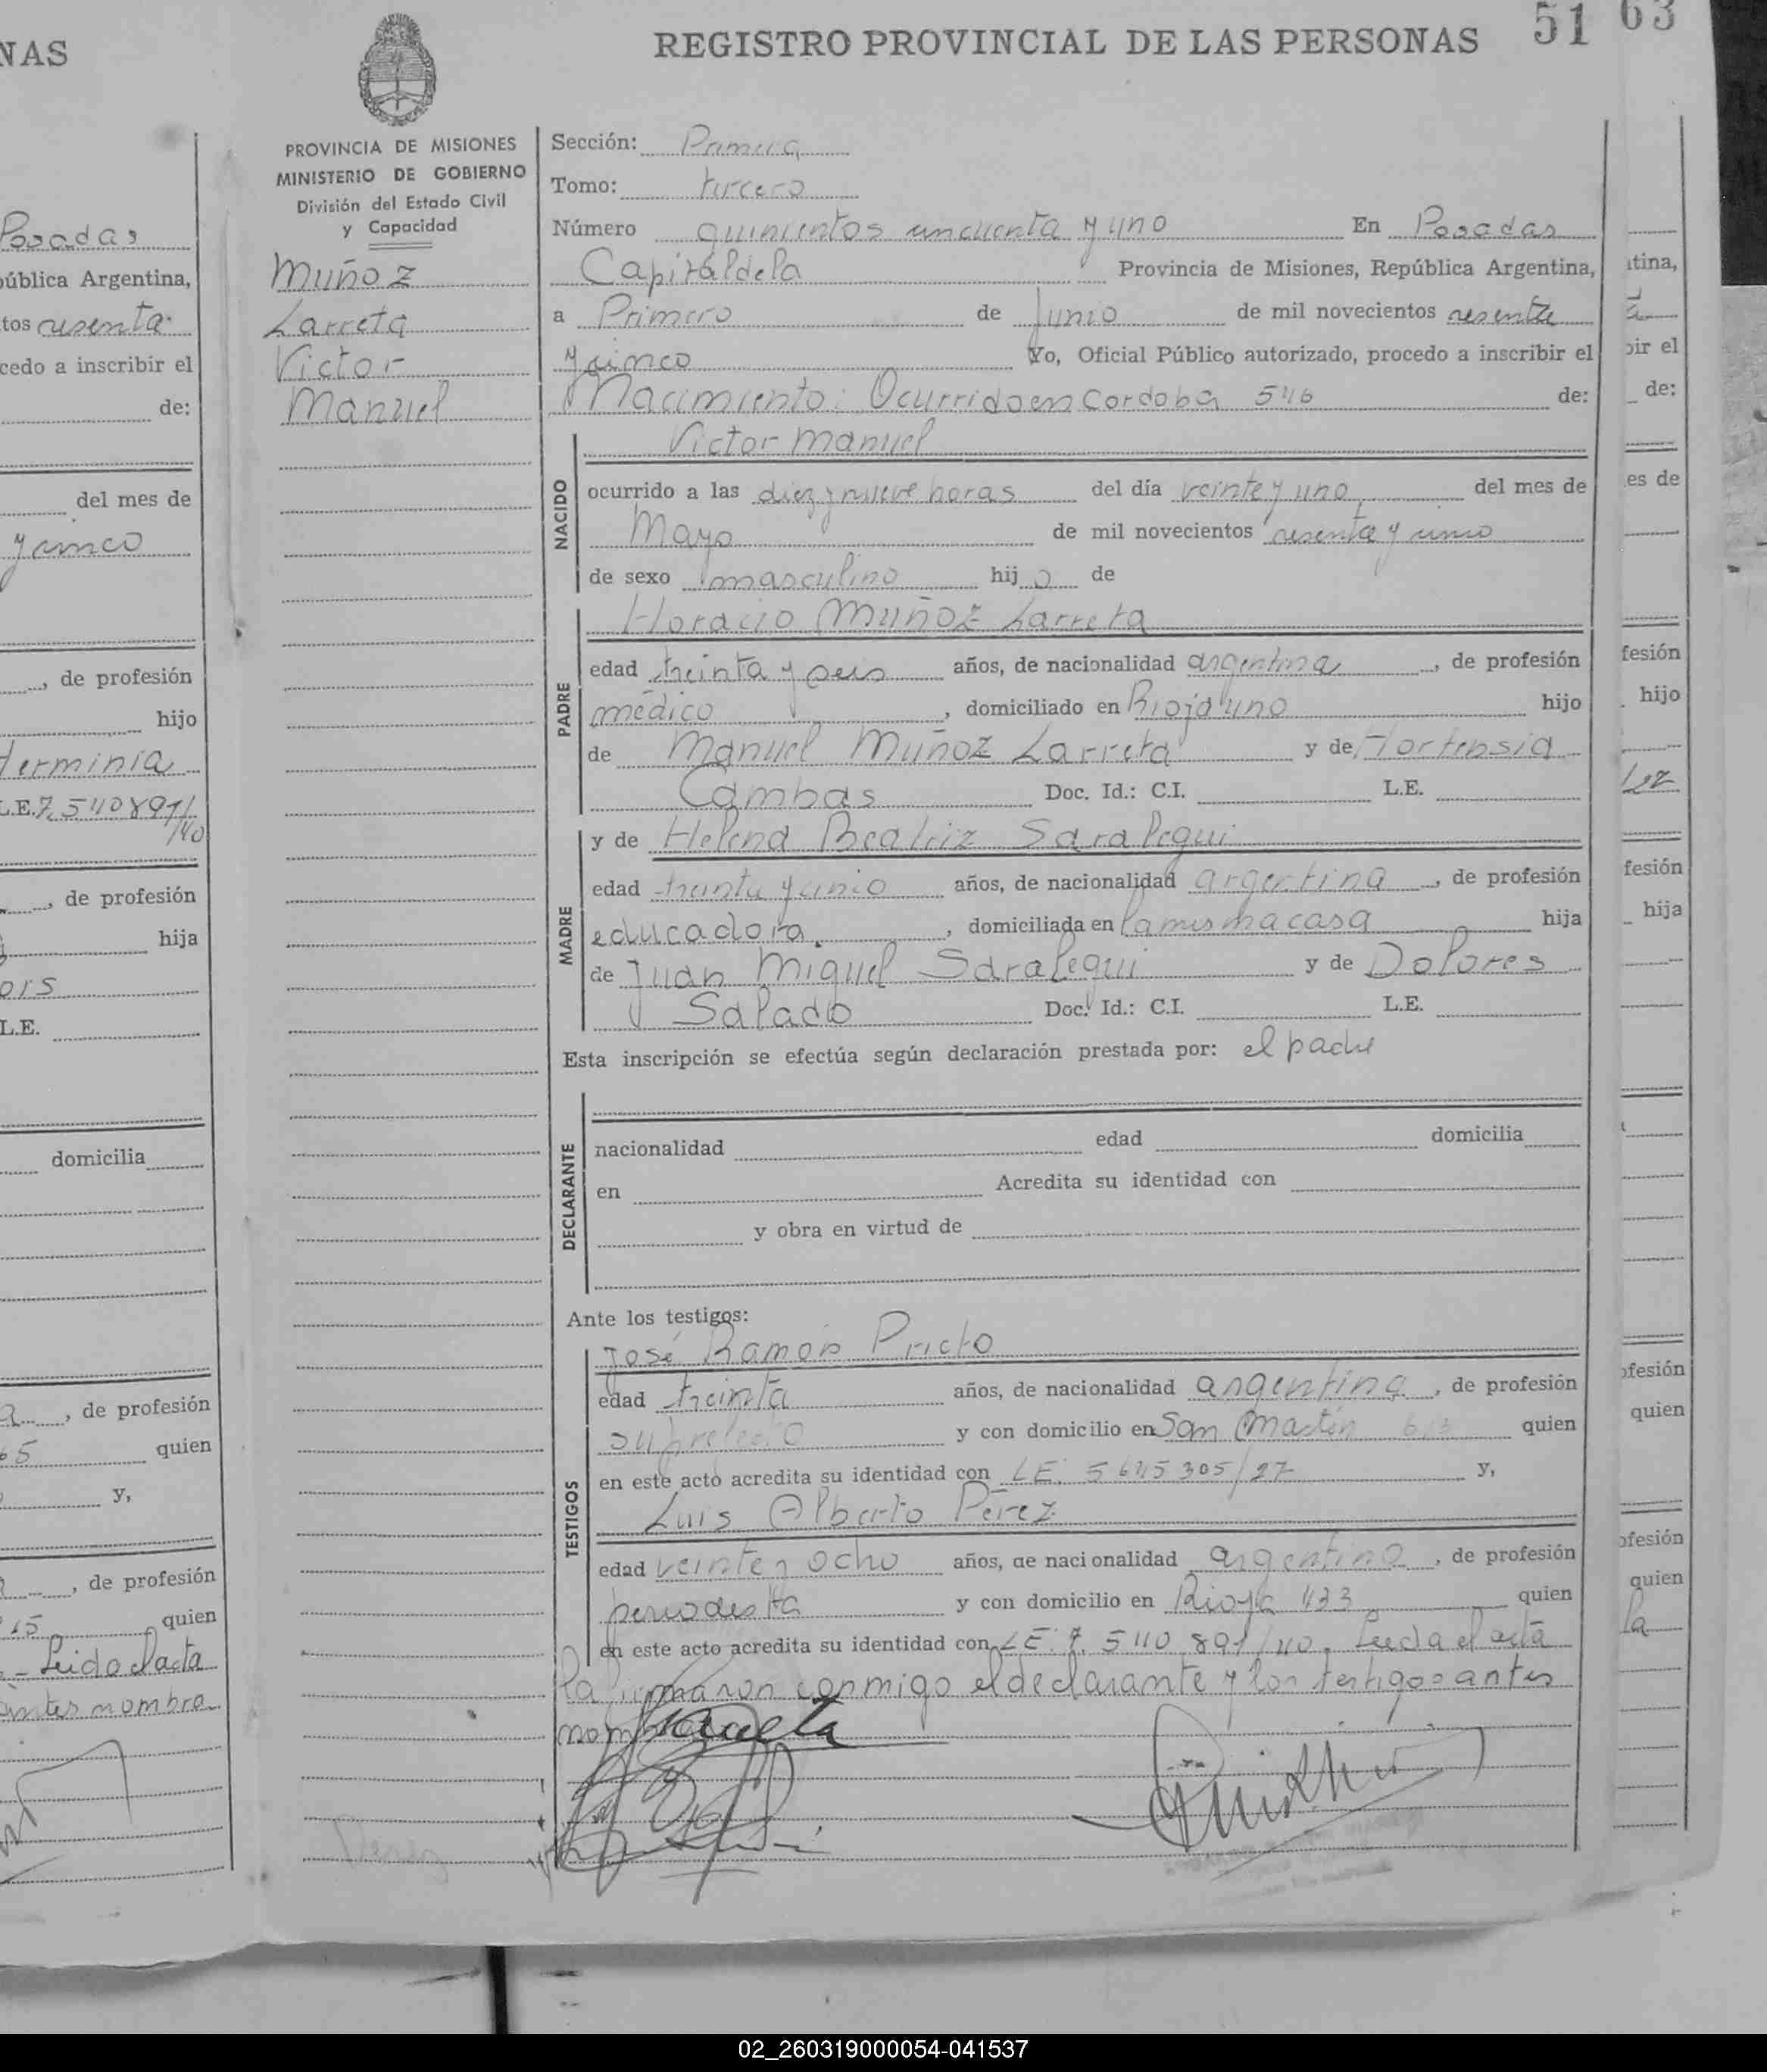 NAS
Posadas
pública Argentina,
tos sesenta
cedo a inscribir el
de:
del mes de
y cinco
, de profesión
hijo
Herminia
L.E. 7.540891/
/40
, de profesión
hija
ois
L.E.
domicilia
a , de profesión
65 quien
y,
, de profesión
quien
- Leida el acta
antes nombra
REGISTRO PROVINCIAL DE LAS PERSONAS 51 63
PROVINCIA DE MISIONES
MINISTERIO DE GOBIERNO
División del Estado Civil
y Capacidad
Muñoz
Larreta
Victor
Manuel
Sección: Primera
Tomo: tercero
Número quinientos cincuenta y uno En Posadas
Capital de la Provincia de Misiones, República Argentina,
a Primero de Junio de mil novecientos sesenta
y cinco Yo, Oficial Público autorizado, procedo a inscribir el
Nacimiento: Ocurrido en Cordoba 546 de:
Victor Manuel
NACIDO
ocurrido a las diez y nueve horas del día veinte y uno del mes de
Mayo de mil novecientos sesenta y cinco
de sexo masculino hij o de
Horacio Muñoz Larreta
PADRE
edad treinta y seis años, de nacionalidad argentina , de profesión
médico , domiciliado en Rioja uno hijo
de Manuel Muñoz Larreta y de Hortensia
Cambas Doc. Id.: C.I. L.E.
MADRE
y de Helena Beatriz Saralegui
edad treinta y cinco años, de nacionalidad argentina , de profesión
educadora. , domiciliada en la misma casa hija
de Juan Miguel Saralegui y de Dolores
Salado Doc. Id.: C.I. L.E.
Esta inscripción se efectúa según declaración prestada por: el padre
DECLARANTE
nacionalidad edad domicilia
en Acredita su identidad con
y obra en virtud de
Ante los testigos:
TESTIGOS
José Ramón Prieto
edad treinta años, de nacionalidad argentina , de profesión
y con domicilio en San Martín quien
en este acto acredita su identidad con LE. 5645305/27 y,
Luis Alberto Pérez
edad veinte y ocho años, de nacionalidad argentino , de profesión
periodista y con domicilio en Rioja 433 quien
en este acto acredita su identidad con LE. 7.540.891/40. Leida el acta
la firmaron conmigo el declarante y los testigos antes
Larreta
Perez
atina,
bir el
de:
es de
fesión
hijo
fesión
hija
ofesión
quien
ofesión
quien
la
02_260319000054-041537